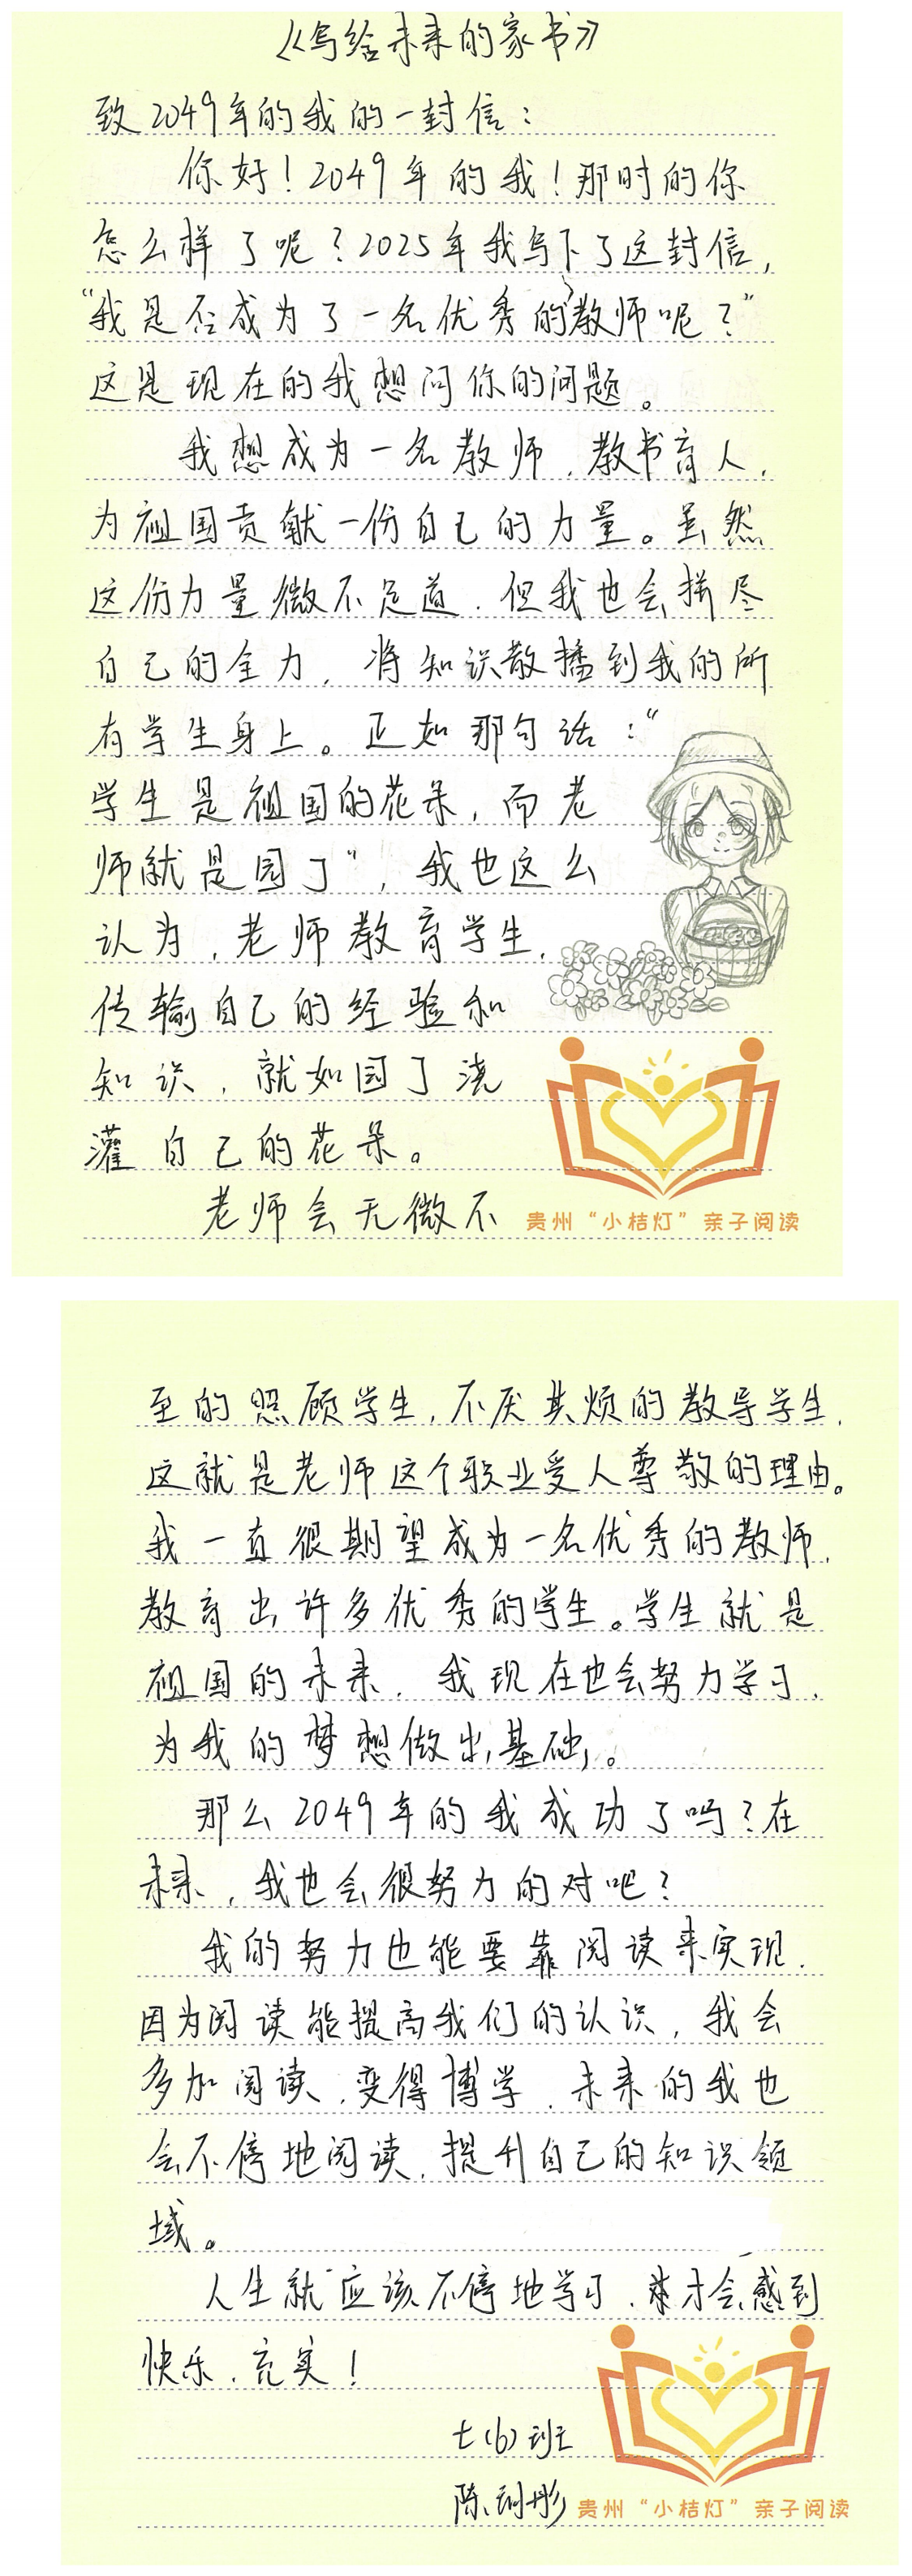 《写给未来的家书》
致2049年的我的一封信：
你好！2049年的我！那时的你
怎么样了呢？2025年我写下了这封信，
“我是否成为了一名优秀的教师呢？”
这是现在的我想问你的问题。
我想成为一名教师，教书育人，
为祖国贡献一份自己的力量。虽然
这份力量微不足道，但我也会拼尽
自己的全力，将知识散播到我的所
有学生身上。正如那句话：“
学生是祖国的花朵，而老
师就是园丁”，我也这么
认为，老师教育学生，
传输自己的经验和
知识，就如园丁浇
灌自己的花朵。
老师会无微不
贵州“小桔灯”亲子阅读
至的照顾学生，不厌其烦的教导学生，
这就是老师这个职业受人尊敬的理由。
我一直很期望成为一名优秀的教师，
教育出许多优秀的学生。学生就是
祖国的未来，我现在也会努力学习，
为我的梦想做出基础。
那么2049年的我成功了吗？在
未来，我也会很努力的对吧？
我的努力也能要靠阅读来实现，
因为阅读能提高我们的认识，我会
多加阅读，变得博学，未来的我也
会不停地阅读，提升自己的知识领
域。
人生就应该不停地学习，才会感到
快乐，充实！
七（6）班
陈彤
贵州“小桔灯”亲子阅读